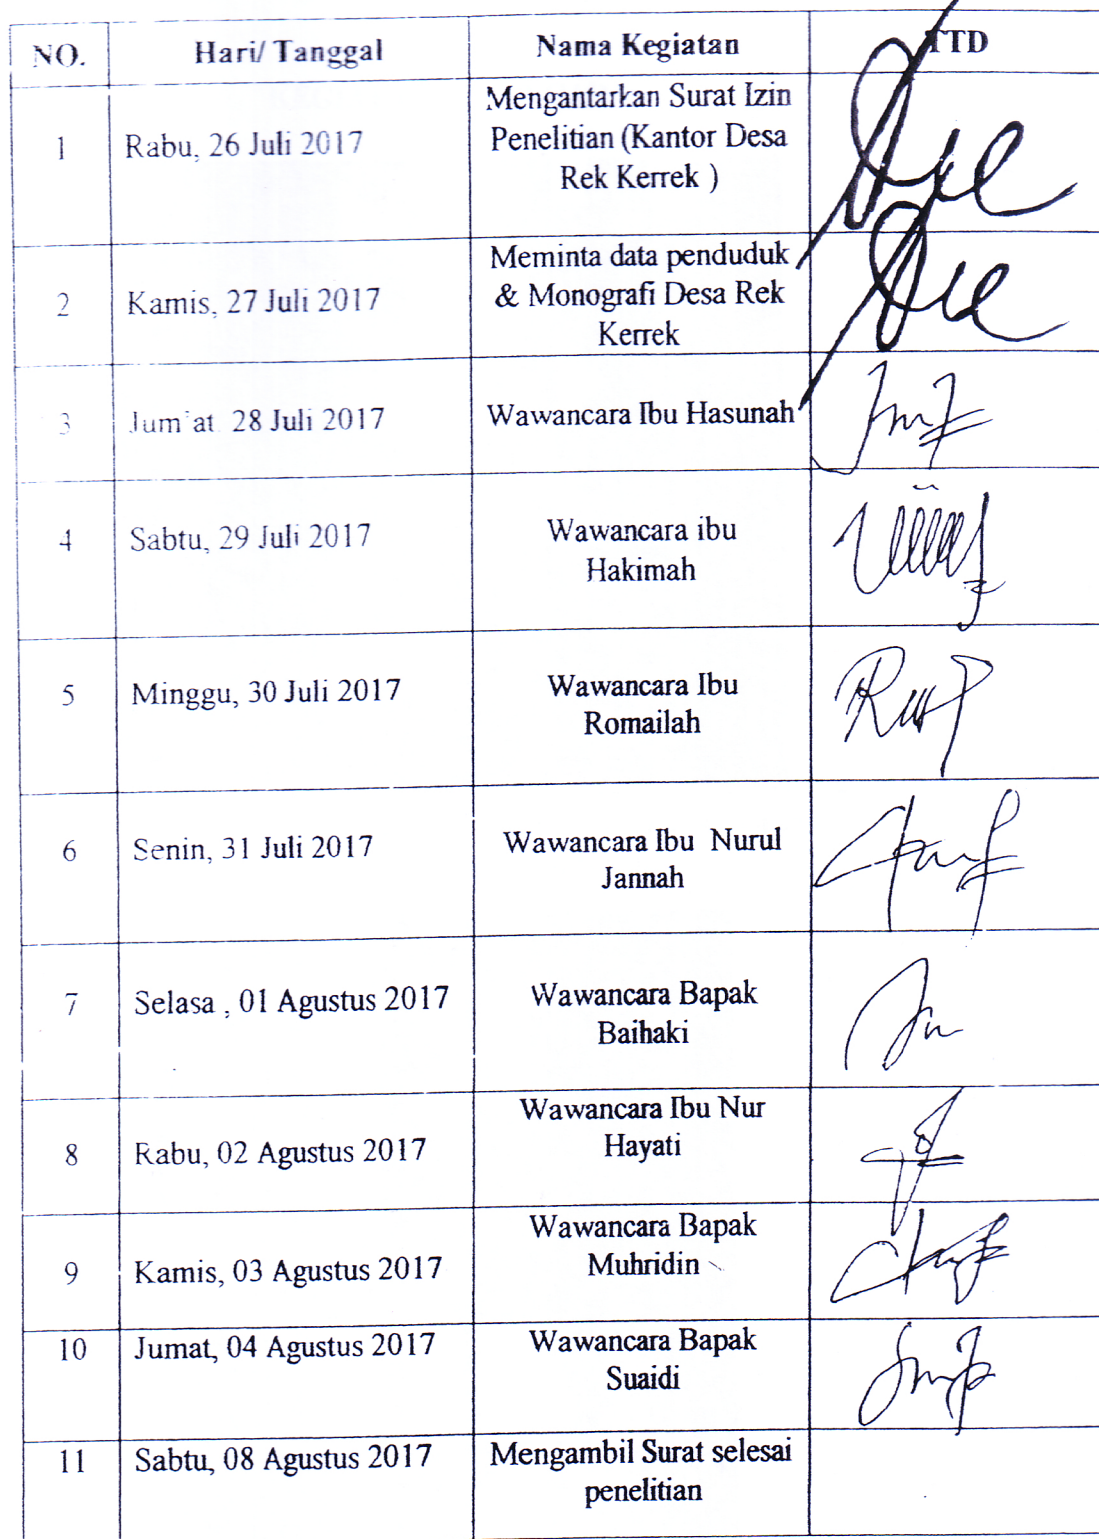 NO. Hari/ Tanggal Nama Kegiatan TTD
1 Rabu, 26 Juli 2017 Mengantarkan Surat Izin
Penelitian (Kantor Desa
Rek Kerrek )
2 Kamis, 27 Juli 2017 Meminta data penduduk
& Monografi Desa Rek
Kerrek
3 Jum'at 28 Juli 2017 Wawancara Ibu Hasunah
4 Sabtu, 29 Juli 2017 Wawancara ibu
Hakimah
5 Minggu, 30 Juli 2017 Wawancara Ibu
Romailah
6 Senin, 31 Juli 2017 Wawancara Ibu Nurul
Jannah
7 Selasa , 01 Agustus 2017 Wawancara Bapak
Baihaki
8 Rabu, 02 Agustus 2017 Wawancara Ibu Nur
Hayati
9 Kamis, 03 Agustus 2017 Wawancara Bapak
Muhridin
10 Jumat, 04 Agustus 2017 Wawancara Bapak
Suaidi
11 Sabtu, 08 Agustus 2017 Mengambil Surat selesai
penelitian